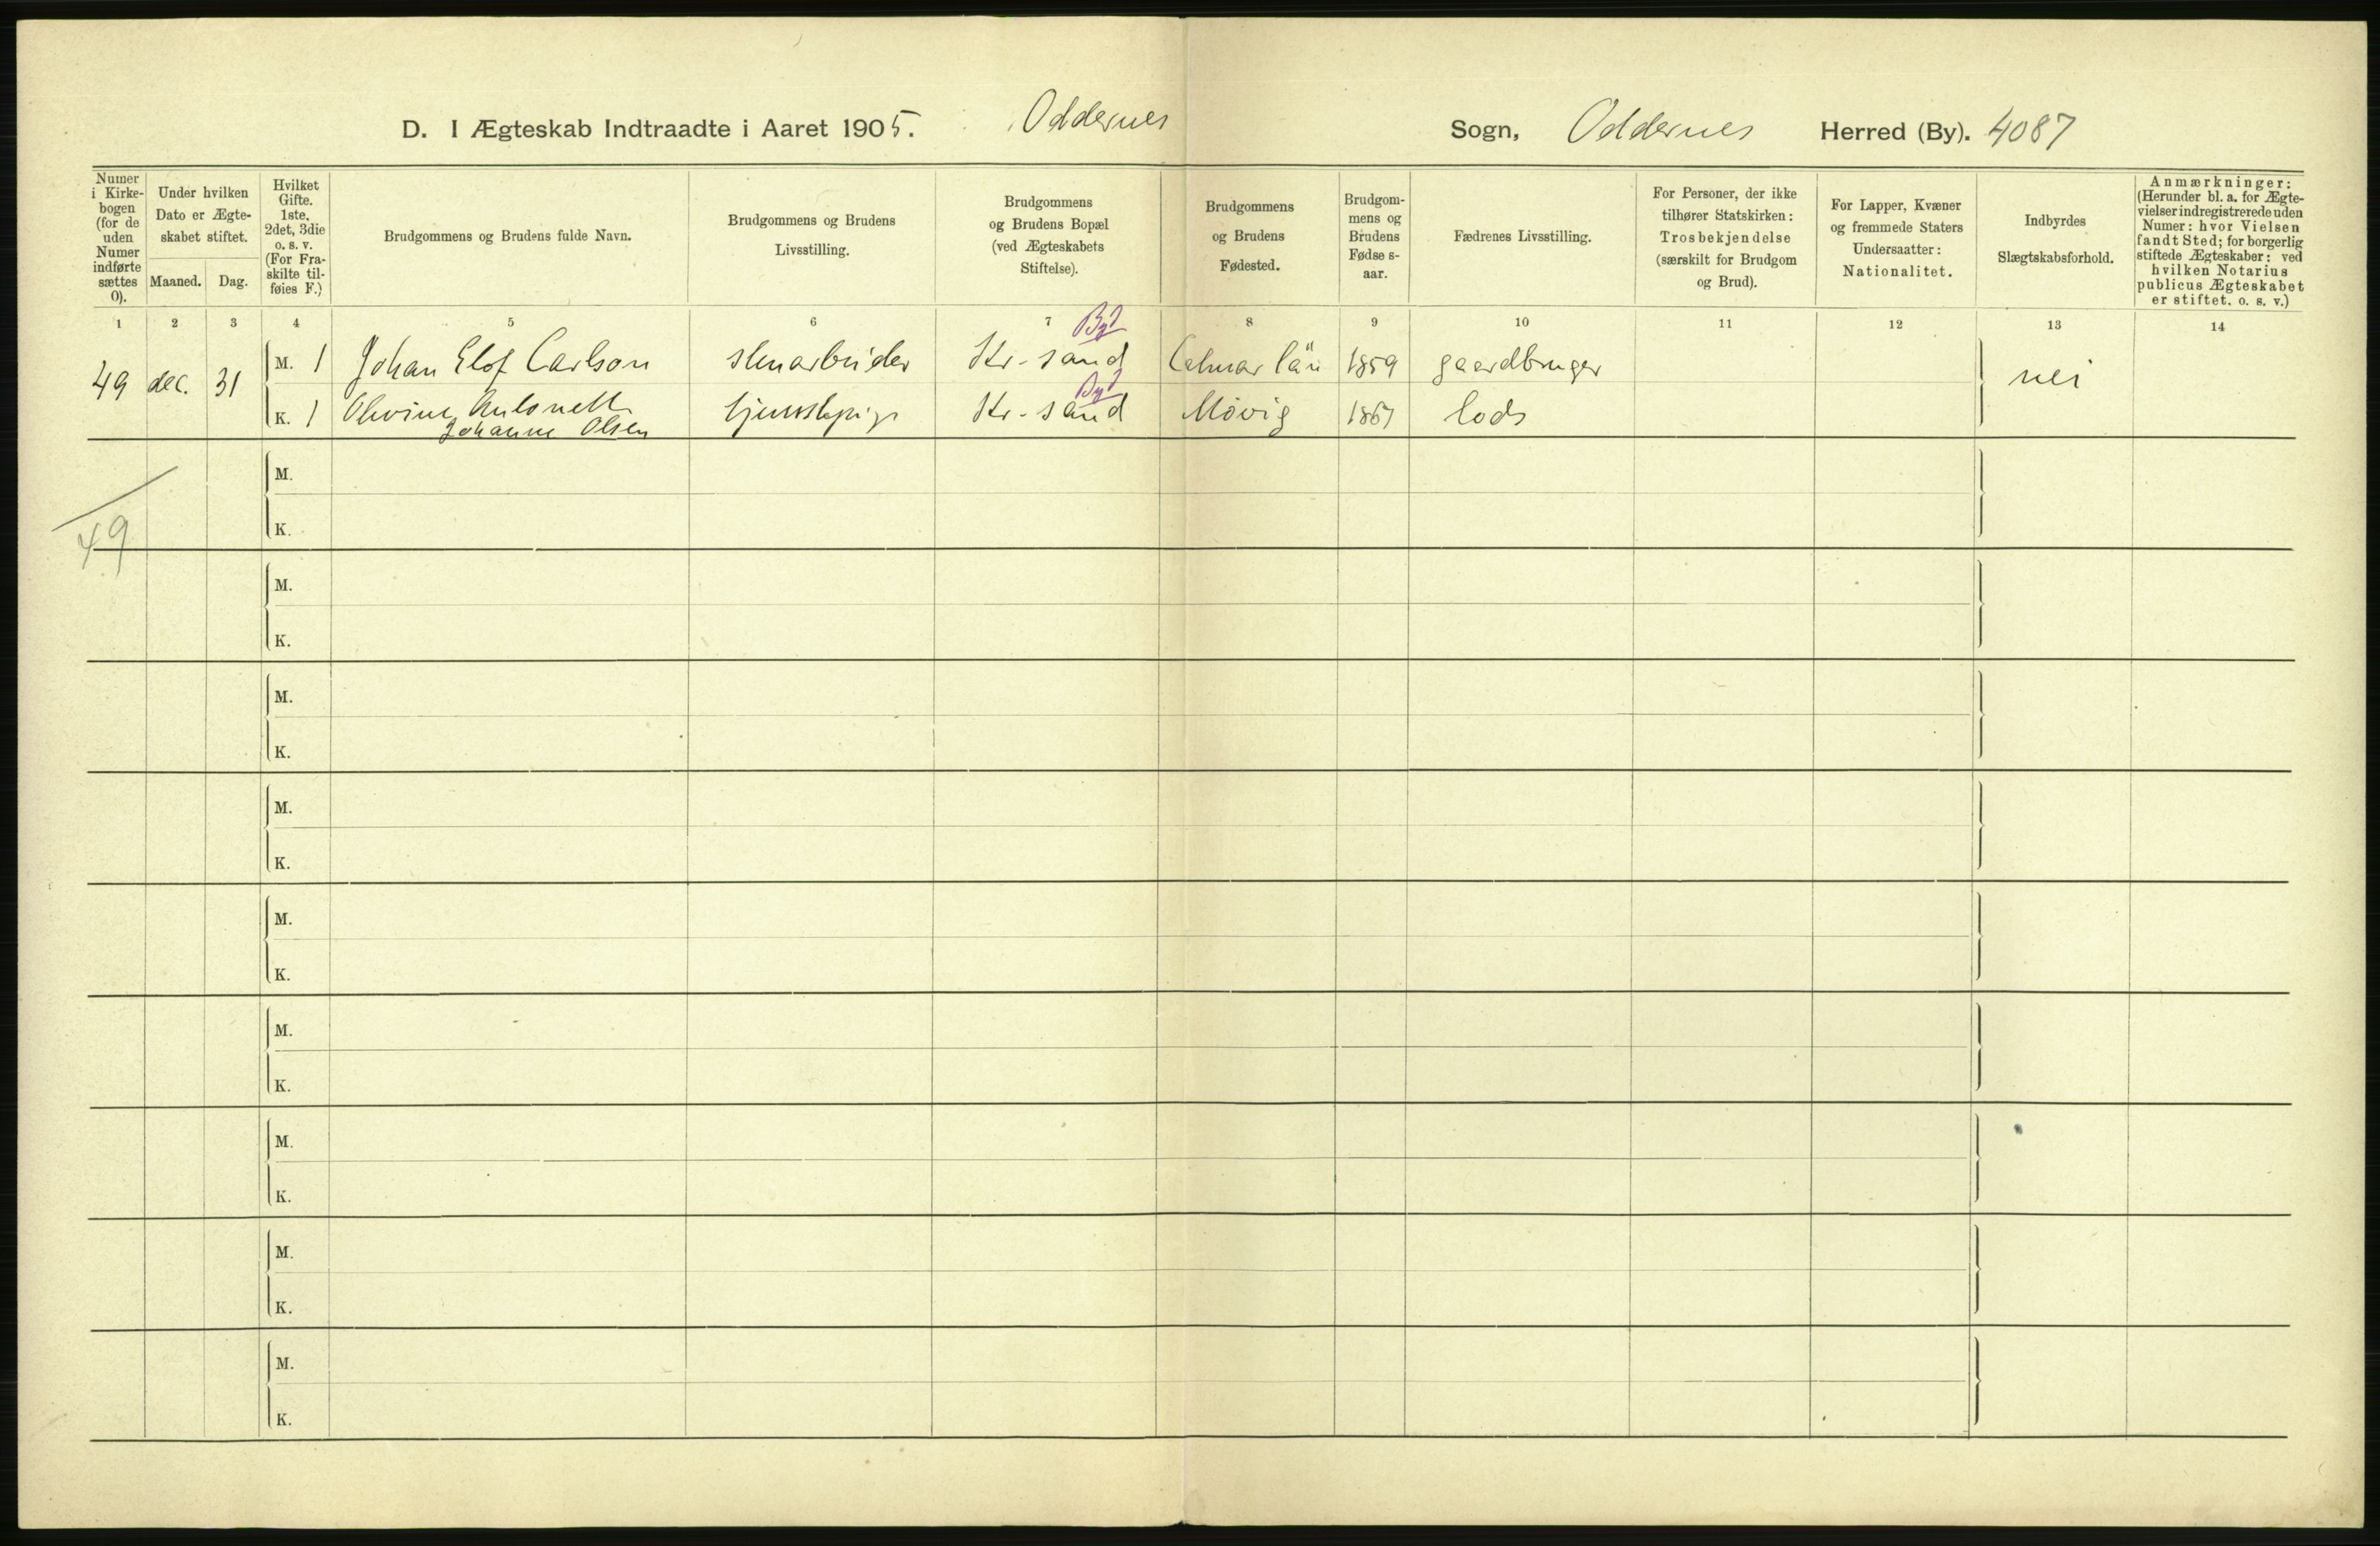 D. I Ægteskab Indtraadte i Aaret 1905. Oddernes Sogn, Oddernes Herred (By). 4087
Numer i Kirke-
bogen
(for de
uden
Numer
indførte
sættes
0).
Under hvilken
Dato er Ægte-
skabet stiftet.
Maaned. Dag.
Hvilket
Gifte.
1ste,
2det, 3die
o. s. v.
(For Fra-
skilte til-
føies F.)
Brudgommens og Brudens fulde Navn.
Brudgommens og Brudens
Livsstilling.
Brudgommens
og Brudens Bopæl
(ved Ægteskabets
Stiftelse).
Brudgommens
og Brudens
Fødested.
Brudgom-
mens og
Brudens
Fødse s-
aar.
Fædrenes Livsstilling.
For Personer, der ikke
tilhører Statskirken:
Trosbekjendelse
(særskilt for Brudgom
og Brud).
For Lapper, Kvæner
og fremmede Staters
Undersaatter:
Nationalitet.
Indbyrdes
Slægtskabsforhold.
Anmærkninger:
(Herunder bl. a. for Ægte-
vielser indregistrerede uden
Numer: hvor Vielsen
fandt Sted; for borgerlig
stiftede Ægteskaber: ved
hvilken Notarius
publicus Ægteskabet
er stiftet. o. s. v.)
1 2 3 4 5 6 7 8 9 10 11 12 13 14
By?
49 dec. 31 M. 1 Johan Elof Carlson stenarbeider Kr-sand Calmar län 1859 gaardbruger nei
By?
K. 1 Olevine Antonette tjenestepige Kr-sand Movig 1867 lods
Johanne Olsen
M.
K.
49
M.
K.
M.
K.
M.
K.
M.
K.
M.
K.
M.
K.
M.
K.
M.
K.